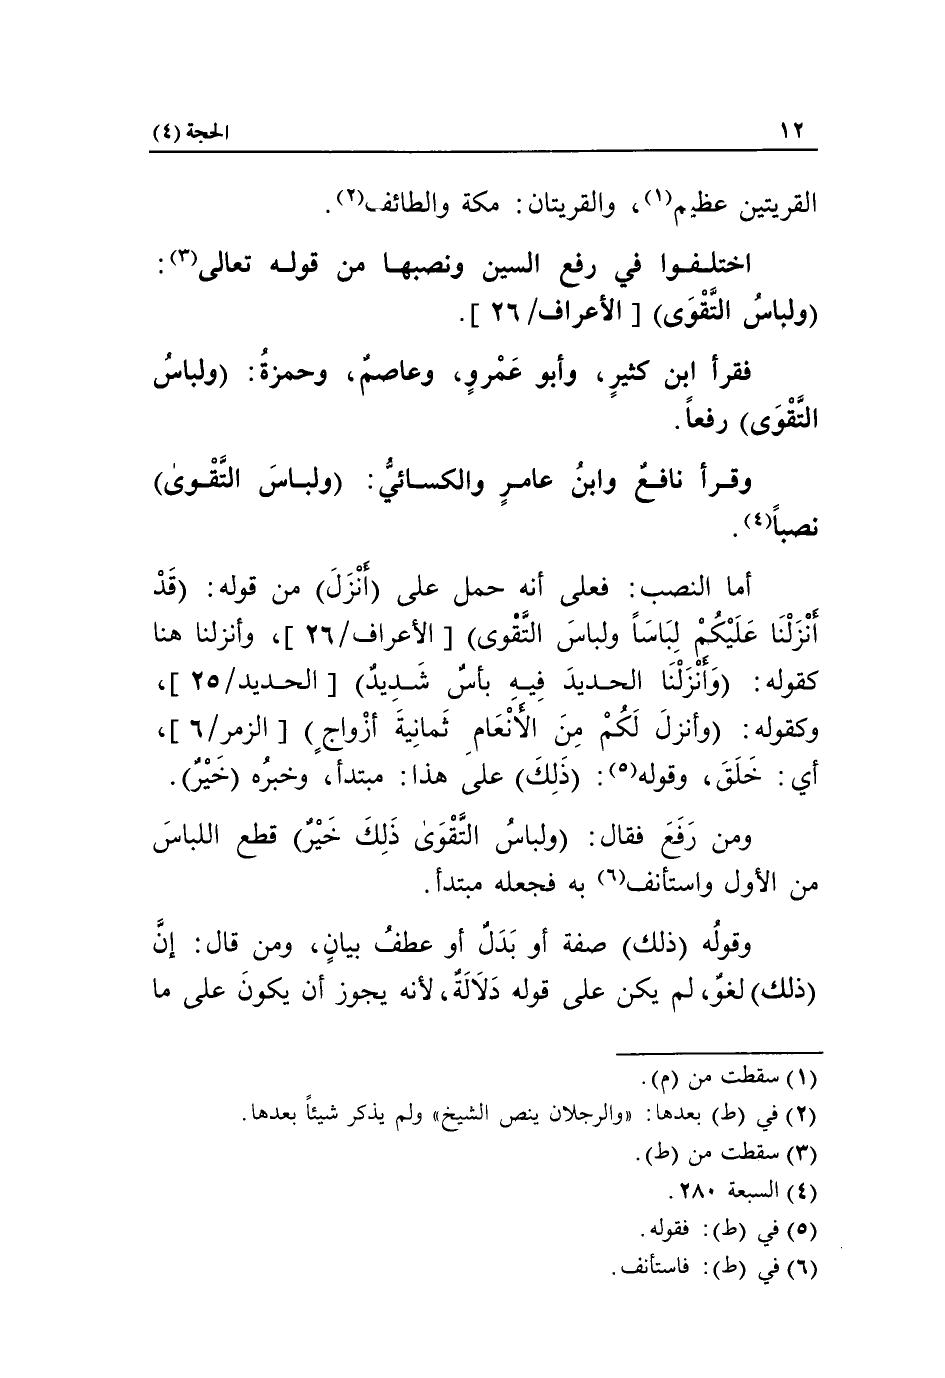 ١٢ الحجة (٤)
القريتين عظيم(١)، والقريتان: مكة والطائف(٢).
اختلفوا في رفع السين ونصبها من قوله تعالى(٣):
(ولباسُ التَّقْوَى) [ الأعراف/ ٢٦ ].
فقرأ ابن كثيرٍ، وأبو عَمْروٍ، وعاصمٌ، وحمزةُ: (ولباسُ
التَّقْوَى) رفعاً.
وقرأ نافعٌ وابنُ عامرٍ والكسائيُّ: (ولباسَ التَّقْوىٰ)
نصباً(٤).
أما النصب: فعلى أنه حمل على (أَنْزَلَ) من قوله: (قَدْ
أَنْزَلْنَا عَلَيْكُمْ لِبَاسَاً ولباسَ التَّقْوى) [ الأعراف/ ٢٦ ]، وأنزلنا هنا
كقوله: (وَأَنْزَلْنَا الحديدَ فِيهِ بأسٌ شَدِيدٌ) [ الحديد/ ٢٥ ]،
وكقوله: (وأنزلَ لَكُمْ مِنَ الأَنْعَامِ ثَمانِيةَ أزْواجٍ) [ الزمر/ ٦ ]،
أي: خَلَقَ، وقوله(٥): (ذَلِكَ) على هذا: مبتدأ، وخبرُه (خَيْرٌ).
ومن رَفَعَ فقال: (ولباسُ التَّقْوَىٰ ذَلِكَ خَيْرٌ) قطع اللباسَ
من الأول واستأنف(٦) به فجعله مبتدأ.
وقولُه (ذلك) صفة أو بَدَلٌ أو عطفُ بيانٍ، ومن قال: إنَّ
(ذلك) لغوٌ، لم يكن على قوله دَلَالَةٌ، لأنه يجوز أن يكونَ على ما
(١) سقطت من (م).
(٢) في (ط) بعدها: «والرجلان ينص الشيخ» ولم يذكر شيئاً بعدها.
(٣) سقطت من (ط).
(٤) السبعة ٢٨٠.
(٥) في (ط): فقوله.
(٦) في (ط): فاستأنف.